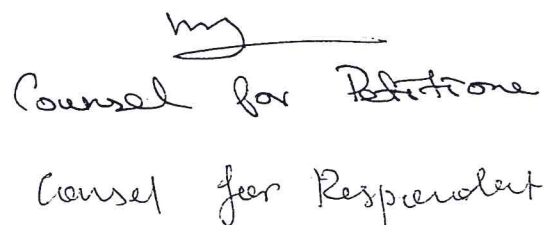 Counsel for Petitione
Counsel for Respondent